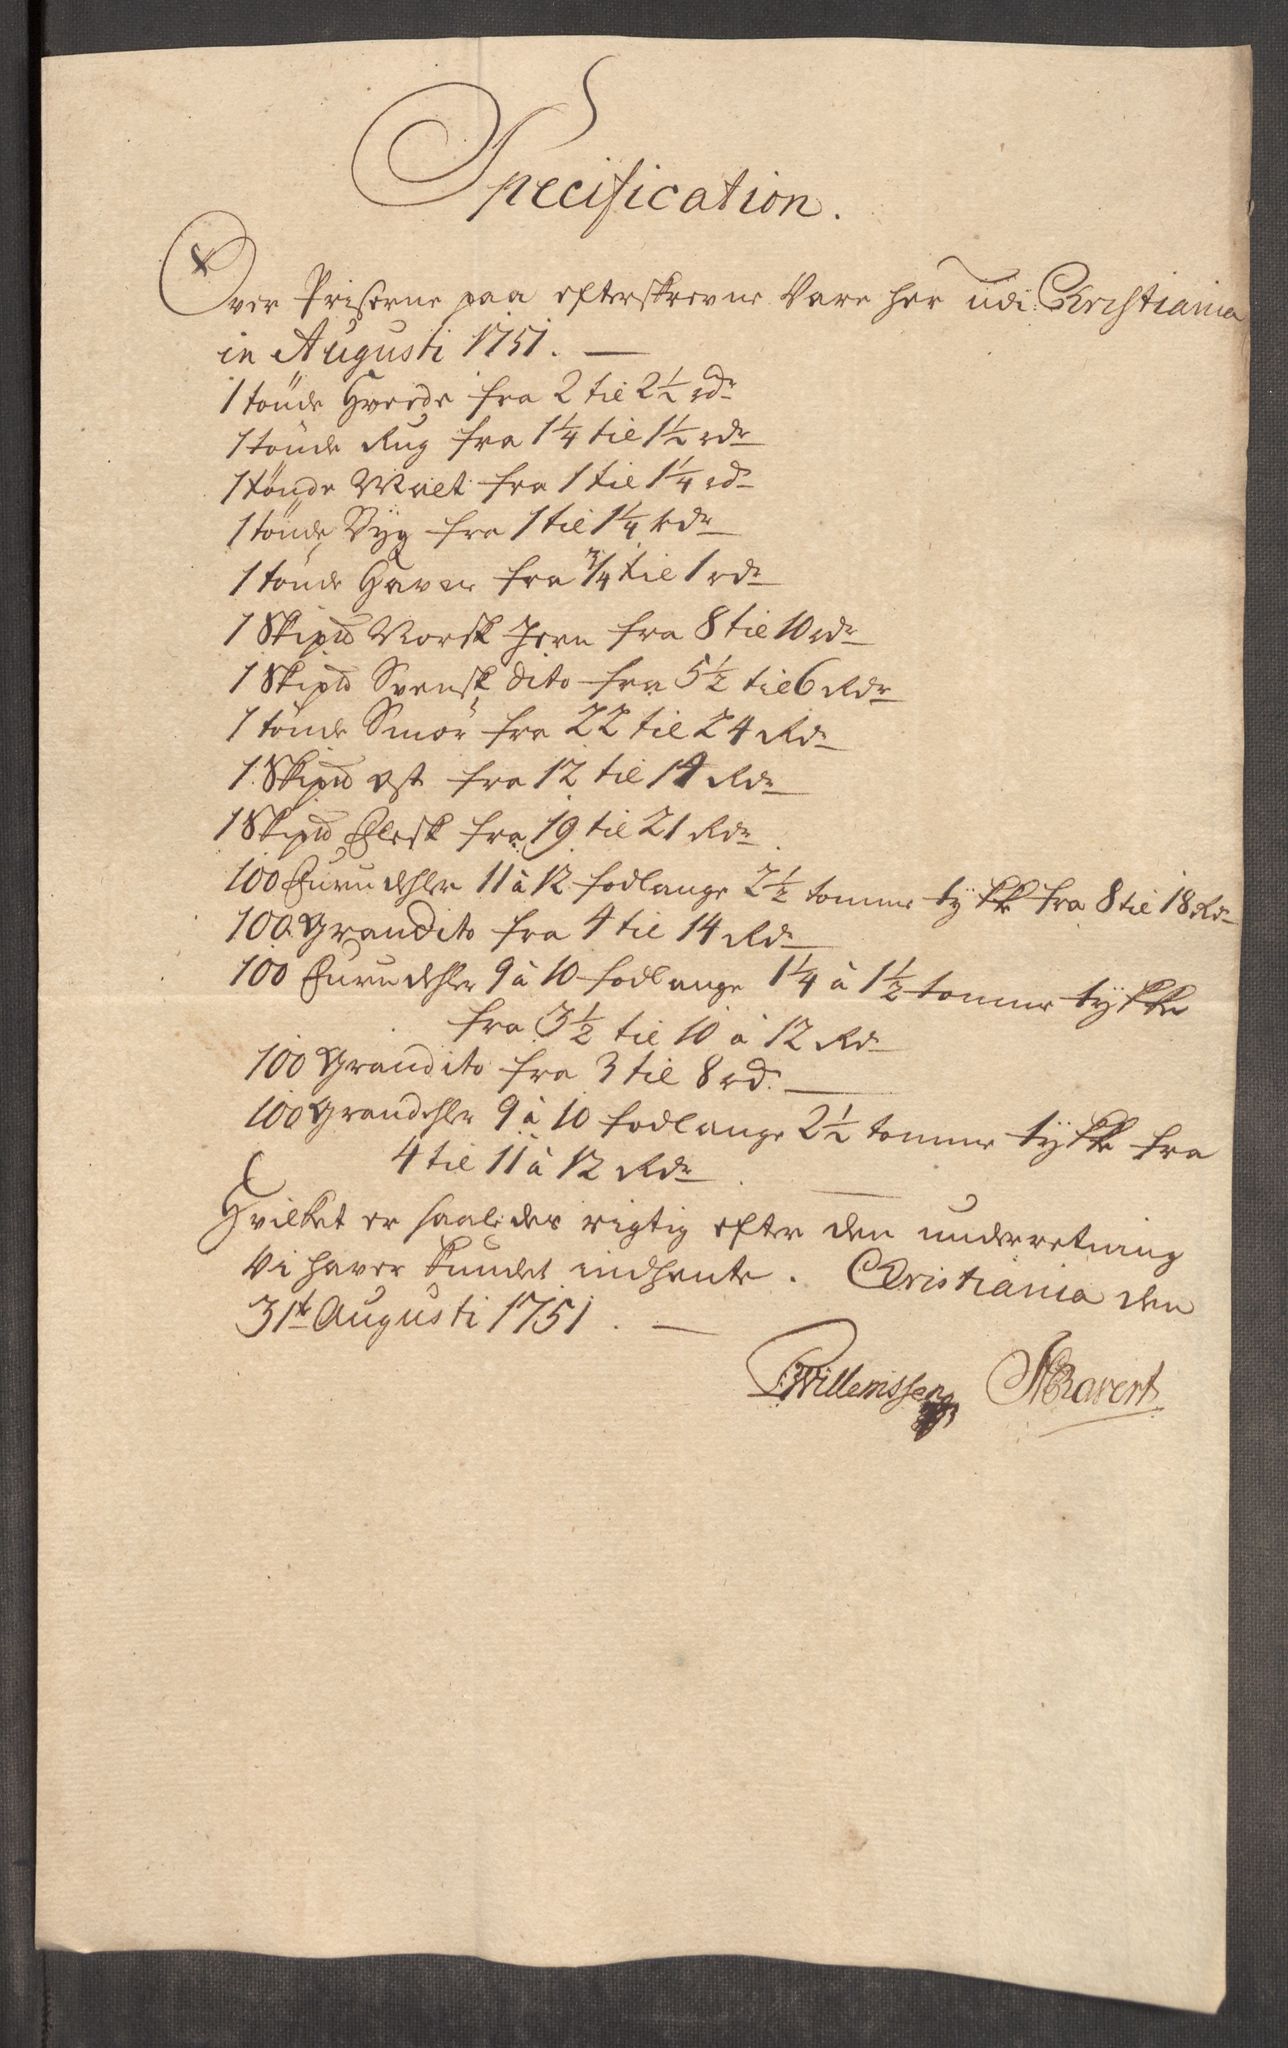 Specification.
Over Priserne paa efterskrevne Vare her udi Christiania
in Augusti 1751. —
1 tönde Hvede fra 2 til 2½ rdr
1 tönde Rug fra 1¼ til 1½ rdr
1 tönde Malt fra 1 til 1¼ rdr
1 tönde Byg fra 1 til 1¼ rdr
1 tönde Havre fra ¾ til 1 rdr
1 Skipd Norsk Jern fra 8 til 10 rdr
1 Skipd Svensk dito fra 5½ til 6 Rdr
1 tönde Smör fra 22 til 24 Rdr
1 Skipd Ost fra 12 til 14 Rdr
1 Skipd Flesk fra 19 til 21 Rdr
100 Furu dehler 11 à 12 fodlange 2½ tomme tykke fra 8 til 18 Rdr
100 Gran dito fra 4 til 14 Rdr
100 Furu dehler 9 à 10 fodlange 1¼ à 1½ tomme tykke
fra 3½ til 10 à 12 Rdr
100 Gran dito fra 3 til 8 rd. —
100 Gran dehler 9 à 10 fodlange 2½ tomme tykke fra
4 til 11 à 12 Rdr —
Hvilket er saaledes rigtig efter den underretning
Vi haver kundet indhente. Christiania den
31t Augusti 1751. —
Willemssen Ravert